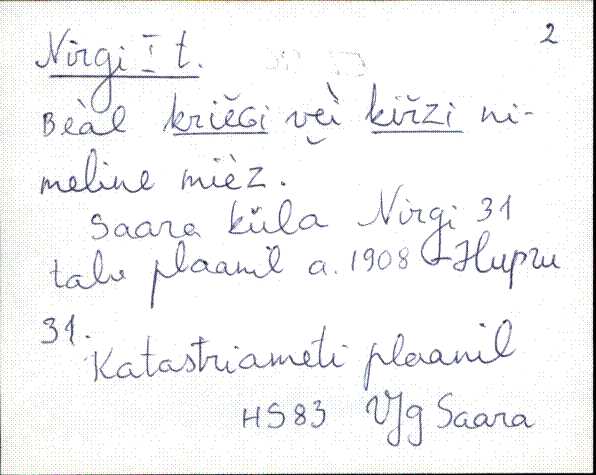 2
Nirgi I t.
Bèàl kriĕGi vèì kiřzi ni-
meline mièz.
Saara küla Nirgi 31
talu plaanil a. 1908 Hupru
31.
Katastriameti plaanil
HS83 Vjg Saara